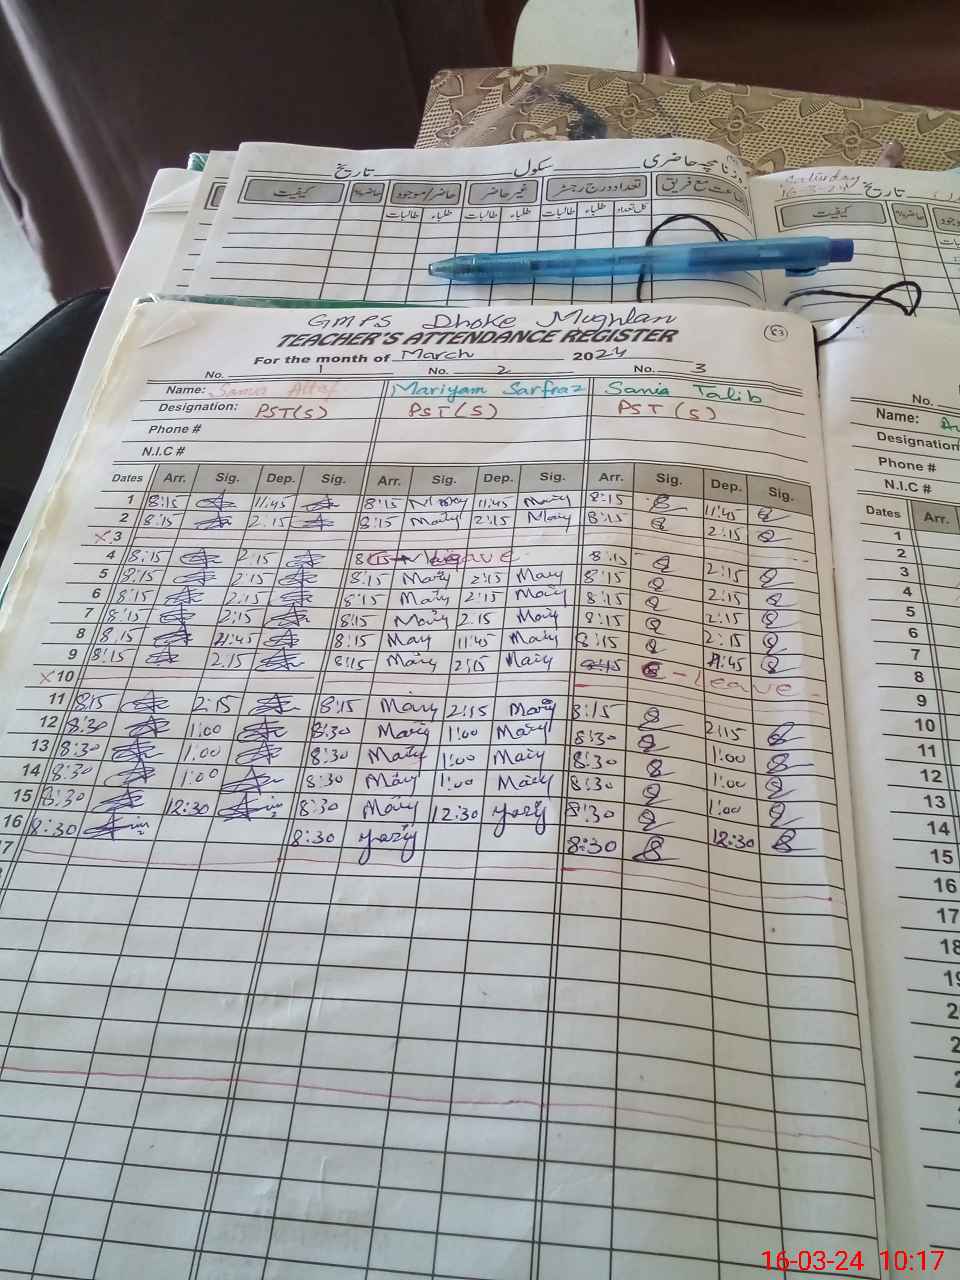 روزنامچہ حاضری سکول تاریخ
کیفیت حاضر/موجود غیر حاضر تعداد درج رجسٹر
طالبات طلباء طالبات طلباء طالبات طلباء کل تعداد
Saturday
16-3-24 تاریخ
کیفیت
83
GMPS Dhoke Mughlan
TEACHER'S ATTENDANCE REGISTER
For the month of March 2024
No. 1 No. 2 No. 3
Name: Samia Altaf Mariyam Sarfraz Samia Talib
Designation: PST(S) PST(S) PST(S)
Phone #
N.I.C #
Dates Arr. Sig. Dep. Sig. Arr. Sig. Dep. Sig. Arr. Sig. Dep. Sig.
1 8:15 11:45 8:15 Mary 11:45 Mary 8:15 11:45
2 8:15 2:15 8:15 Mary 2:15 Mary 8:15 2:15
x 3
4 8:15 2:15 Leave 8:15 2:15
5 8:15 2:15 8:15 Mary 2:15 Mary 8:15 2:15
6 8:15 2:15 8:15 Mary 2:15 Mary 8:15 2:15
7 8:15 2:15 8:15 Mary 2:15 Mary 8:15 2:15
8 8:15 11:45 8:15 Mary 11:45 Mary 8:15 11:45
9 8:15 2:15 8:15 Mary 2:15 Mary Leave
x 10
11 8:15 2:15 8:15 Mary 2:15 Mary 8:15 2:15
12 8:30 1:00 8:30 Mary 1:00 Mary 8:30 1:00
13 8:30 1:00 8:30 Mary 1:00 Mary 8:30 1:00
14 8:30 1:00 8:30 Mary 1:00 Mary 8:30 1:00
15 8:30 12:30 8:30 Mary 12:30 8:30 12:30
16 8:30 8:30 8:30
17
No.
Name:
Designation
Phone #
N.I.C #
Dates Arr.
1
2
3
4
5
6
7
8
9
10
11
12
13
14
15
16
17
18
16-03-24 10:17